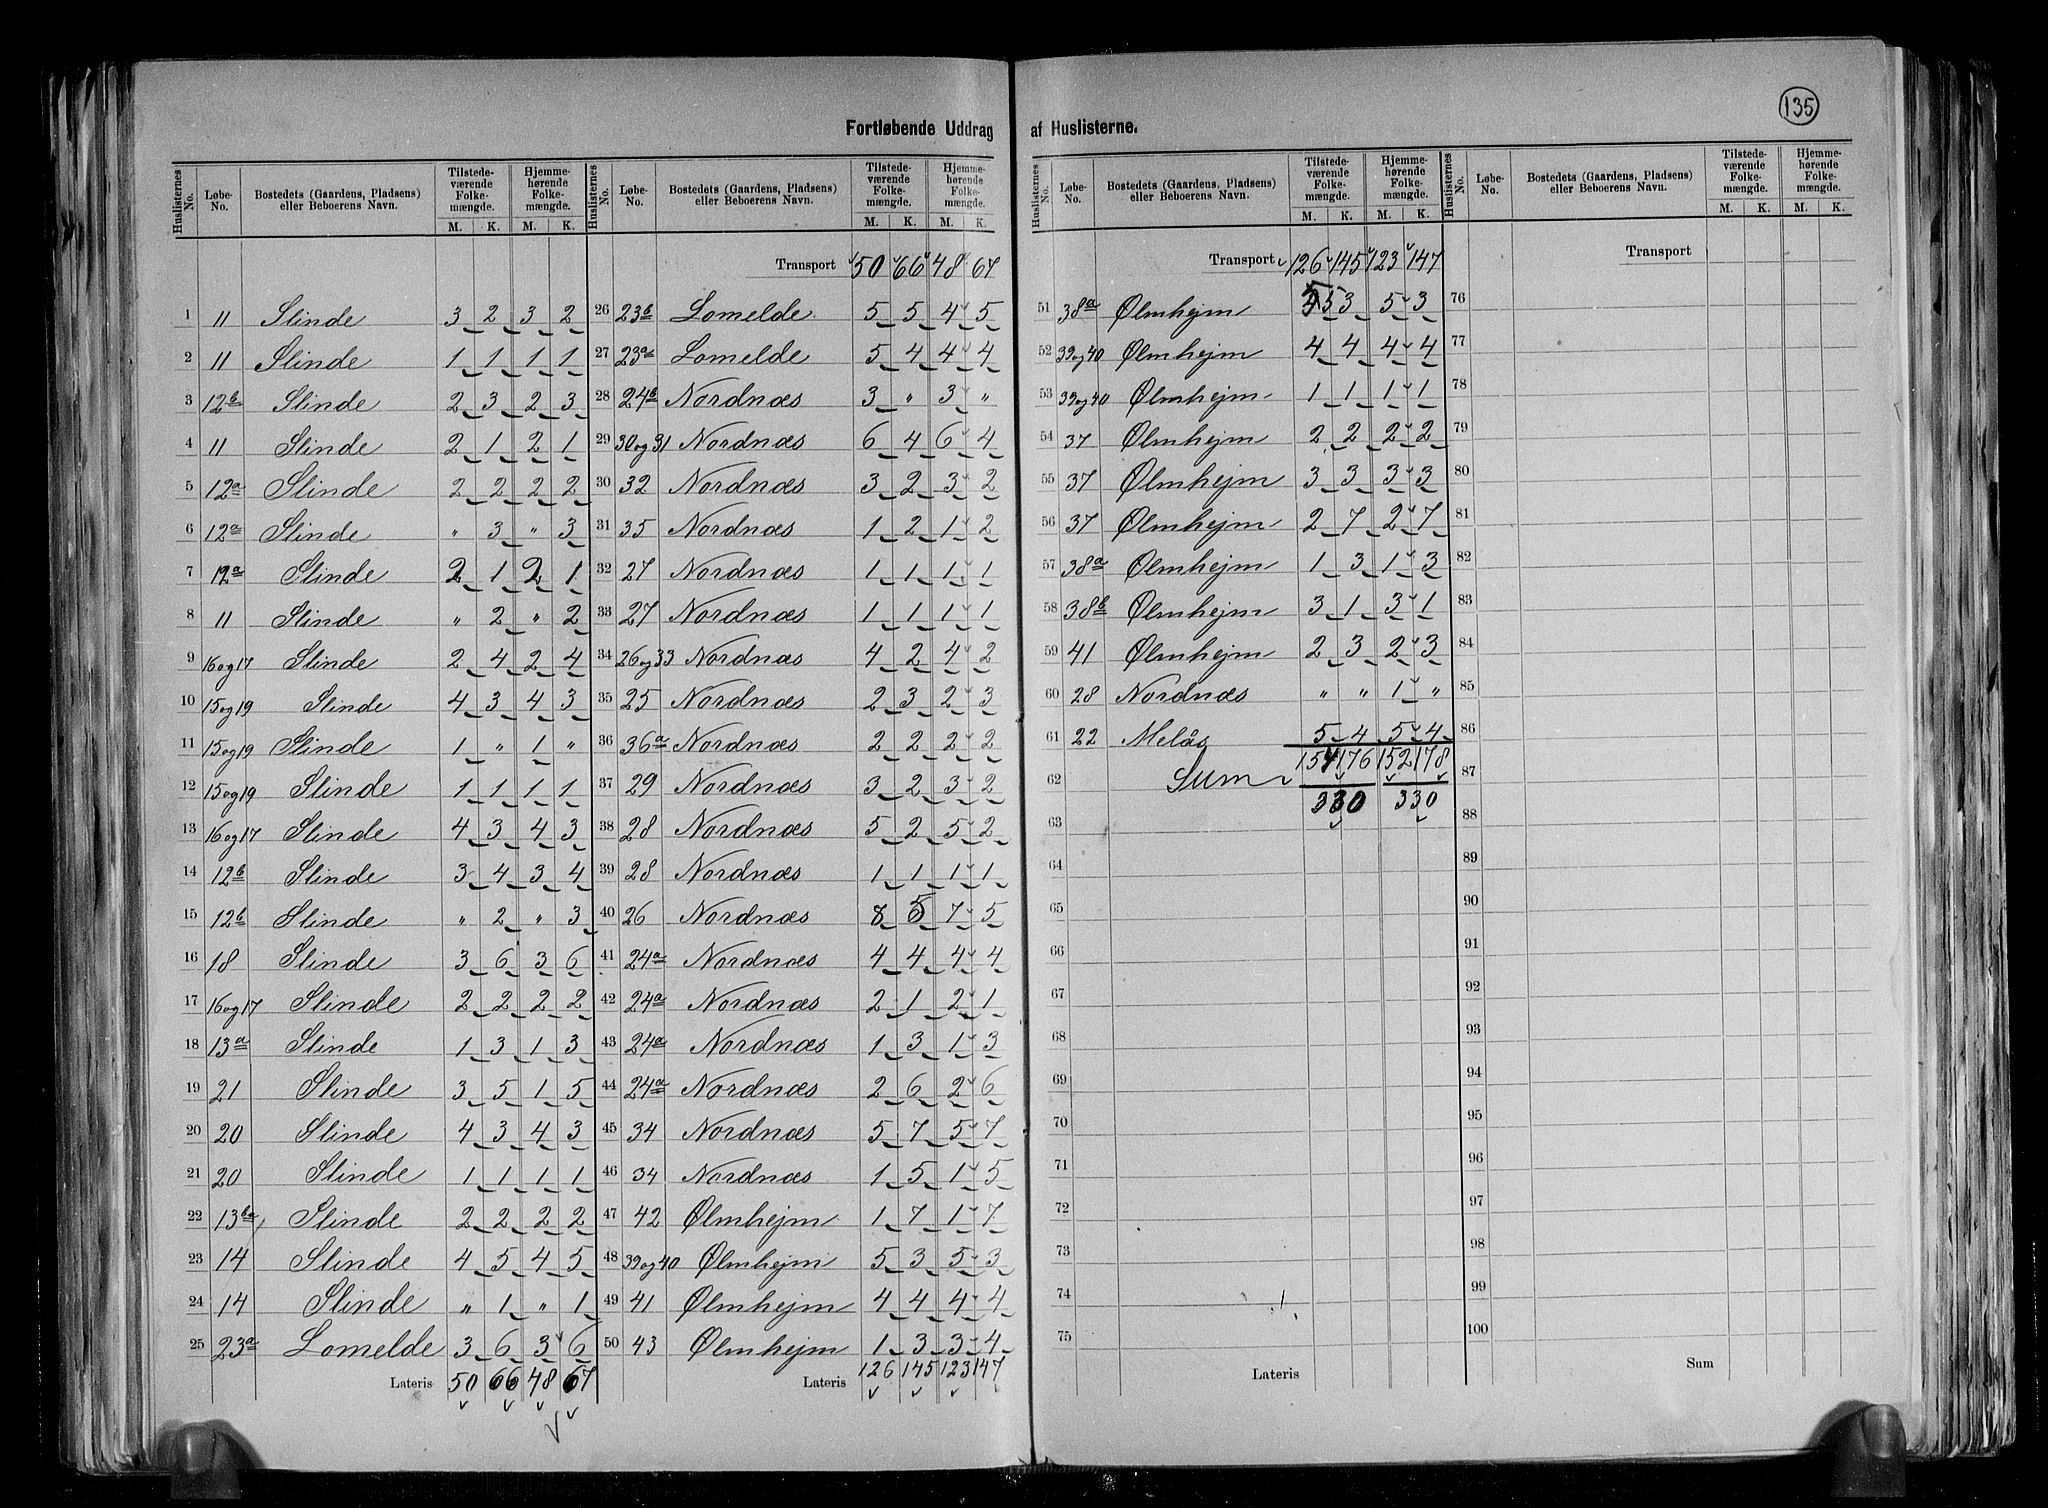 135
Fortløbende Uddrag af Huslisterne.
Huslisternes No. Løbe-No. Bostedets (Gaardens, Pladsens) eller Beboerens Navn. Tilstedeværende Folkemængde. M. K. Hjemmehørende Folkemængde. M. K.
1 11 Slinde 3 2 3 2
2 11 Slinde 1 1 1 1
3 12b Slinde 2 3 2 3
4 11 Slinde 2 1 2 1
5 12a Slinde 2 2 2 2
6 12a Slinde " 3 " 3
7 12a Slinde 2 1 2 1
8 11 Slinde " 2 " 2
9 16og17 Slinde 2 4 2 4
10 15og19 Slinde 4 3 4 3
11 15og19 Slinde 1 " 1 "
12 15og19 Slinde 1 1 1 1
13 16og17 Slinde 4 3 4 3
14 12b Slinde 3 4 3 4
15 12b Slinde " 2 " 3
16 18 Slinde 3 6 3 6
17 16og17 Slinde 2 2 2 2
18 13a Slinde 1 3 1 3
19 21 Slinde 3 5 1 5
20 20 Slinde 4 3 4 3
21 20 Slinde 1 1 1 1
22 13ba Slinde 2 2 2 2
23 14 Slinde 4 5 4 5
24 14 Slinde " 1 " 1
25 23a Lomelde 3 6 3 6
Lateris 50 66 48 67
Huslisternes No. Løbe-No. Bostedets (Gaardens, Pladsens) eller Beboerens Navn. Tilstedeværende Folkemængde. M. K. Hjemmehørende Folkemængde. M. K.
Transport 50 66 48 67
26 23b Lomelde 5 5 4 5
27 23a Lomelde 5 4 4 4
28 24b Nordnæs 3 " 3 "
29 30og31 Nordnæs 6 4 6 4
30 32 Nordnæs 3 2 3 2
31 35 Nordnæs 1 2 1 2
32 27 Nordnæs 1 1 1 1
33 27 Nordnæs 1 1 1 1
34 26og33 Nordnæs 4 2 4 2
35 25 Nordnæs 2 3 2 3
36 36a Nordnæs 2 2 2 2
37 29 Nordnæs 3 2 3 2
38 28 Nordnæs 5 2 5 2
39 28 Nordnæs 1 1 1 1
40 26 Nordnæs 8 5 7 5
41 24a Nordnæs 4 4 4 4
42 24a Nordnæs 2 1 2 1
43 24a Nordnæs 1 3 1 3
44 24a Nordnæs 2 6 2 6
45 34 Nordnæs 5 7 5 7
46 34 Nordnæs 1 5 1 5
47 42 Ølmhejm 1 7 1 7
48 39og40 Ølmhejm 5 3 5 3
49 41 Ølmhejm 4 4 4 4
50 43 Ølmhejm 1 3 3 4
Lateris 126 145 123 147
Huslisternes No. Løbe-No. Bostedets (Gaardens, Pladsens) eller Beboerens Navn. Tilstedeværende Folkemængde. M. K. Hjemmehørende Folkemængde. M. K.
Transport 126 145 123 147
51 38a Ølmhejm 5 3 5 3
52 39og40 Ølmhejm 4 4 4 4
53 39og40 Ølmhejm 1 1 1 1
54 37 Ølmhejm 2 2 2 2
55 37 Ølmhejm 3 3 3 3
56 37 Ølmhejm 2 7 2 7
57 38a Ølmhejm 1 3 1 3
58 38b Ølmhejm 3 1 3 1
59 41 Ølmhejm 2 3 2 3
60 28 Nordnæs " " 1 "
61 22 Melås 5 4 5 4
62 Sum 154 176 152 178
330 330
63
64
65
66
67
68
69
70
71
72
73
74
75
Lateris
Huslisternes No. Løbe-No. Bostedets (Gaardens, Pladsens) eller Beboerens Navn. Tilstedeværende Folkemængde. M. K. Hjemmehørende Folkemængde. M. K.
Transport
76
77
78
79
80
81
82
83
84
85
86
87
88
89
90
91
92
93
94
95
96
97
98
99
100
Sum